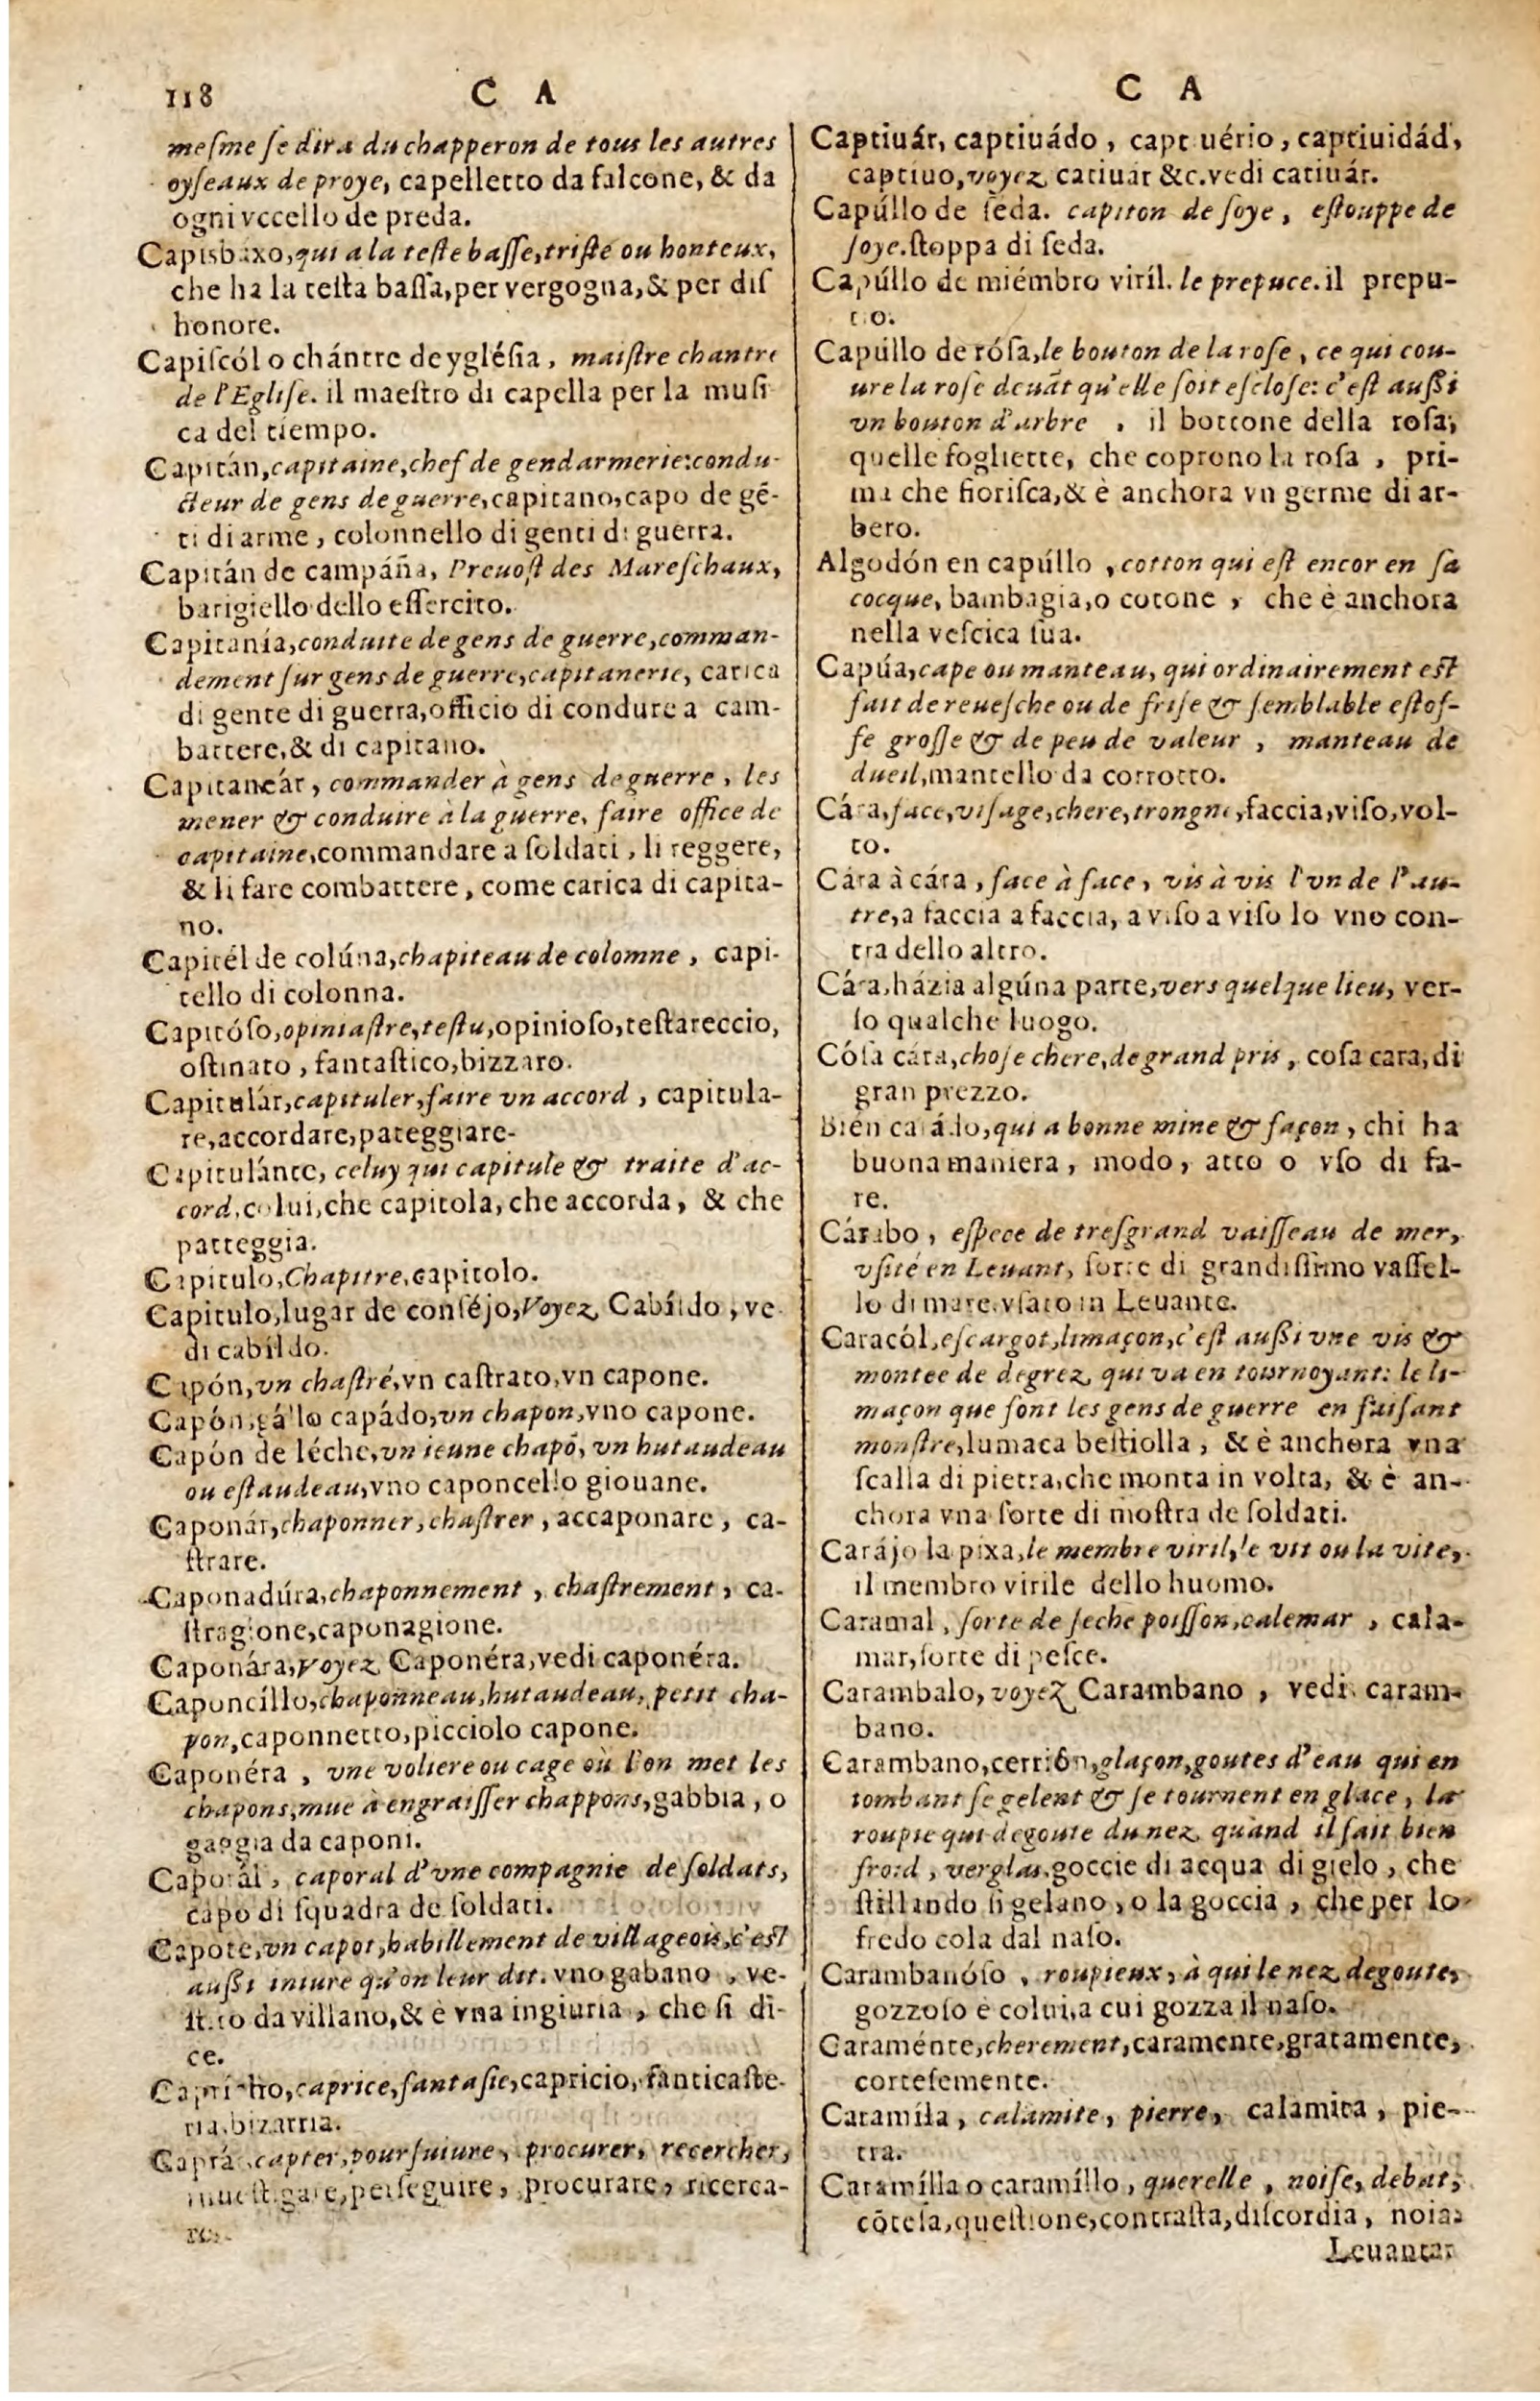 118 C A
meſme ſe dira du chapperon de tous les autres
oyſeaux de proye, capelletto da falcone, & da
ogni vccello de preda.
Capisbaxo, qui a la teſte baſſe, triſte ou honteux,
che ha la teſta baſſa, per vergogna, & per diſ
honore.
Capiſcól o chántre de ygléſia, maiſtre chantre
de l'Egliſe. il maeſtro di capella per la muſi
ca del tiempo.
Capitán, capitaine, chef de gendarmerie: condu-
cteur de gens de guerre, capitano, capo de gē-
ti di arme, colonnello di genti di guerra.
Capitán de campáña, Preuoſt des Mareſchaux,
barigiello dello eſſercito.
Capitanía, conduite de gens de guerre, comman-
dement ſur gens de guerre, capitanerie, carica
di gente di guerra, officio di condure a cam-
battere, & di capitano.
Capitaneár, commander à gens de guerre, les
mener & conduire à la guerre, faire office de
capitaine, commandare a ſoldati, li reggere,
& li fare combattere, come carica di capita-
no.
Capitél de colúna, chapiteau de colomne, capi-
tello di colonna.
Capitóſo, opiniaſtre, teſtu, opinioſo, teſtareccio,
oſtinato, fantaſtico, bizzaro.
Capitulár, capituler, faire vn accord, capitula-
re, accordare, pateggiare-
Capitulánte, celuy qui capitule & traite d'ac-
cord, colui, che capitola, che accorda, & che
patteggia.
Capitulo, Chapitre, capitolo.
Capitulo, lugar de conſéjo, Voyez Cabíldo, ve
di cabíldo.
Capón, vn chaſtré, vn caſtrato, vn capone.
Capón, gállo capádo, vn chapon, vno capone.
Capón de léche, vn ieune chapō, vn hutaudeau
ou eſtaudeau, vno caponcello giouane.
Caponár, chaponner, chaſtrer, accaponare, ca-
ſtrare.
Caponadúra, chaponnement, chaſtrement, ca-
ſtragione, caponagione.
Caponára, voyez Caponéra, vedi caponéra.
Caponcíllo, chaponneau, hutaudeau, petit cha-
pon, caponnetto, picciolo capone.
Caponéra, vne voliere ou cage où l'on met les
chapons, mue à engraiſſer chappons, gabbia, o
gaggia da caponi.
Caporál, caporal d'vne compagnie de ſoldats,
capo di ſquadra de ſoldati.
Capote, vn capot, habillement de villageois, c'eſt
auſſi iniure qu'on leur dit. vno gabano, ve-
ſtito da villano, & è vna ingiuria, che ſi di-
ce.
Caprícho, caprice, fantaſie, capricio, fanticaſte-
ria, bizarria.
Captár, capter, pourſuiure, procurer, recercher,
inueſtigare, perſeguire, procurare, ricerca-
re.
C A
Captiuár, captiuádo, captiuério, captiuidád,
captiuo, voyez catiuár &c. vedi catiuár.
Capúllo de ſéda. capiton de ſoye, eſtouppe de
ſoye. ſtoppa di ſeda.
Capúllo de miémbro viríl. le prepuce. il prepu-
tio.
Capúllo de róſa, le bouton de la roſe, ce qui cou-
ure la roſe deuāt qu'elle ſoit eſcloſe: c'eſt auſſi
vn bouton d'arbre, il bottone della roſa,
quelle fogliette, che coprono la roſa, pri-
ma che fioriſca, & è anchora vn germe di ar-
bero.
Algodón en capúllo, cotton qui eſt encor en ſa
cocque, bambagia, o cotone, che è anchora
nella veſcica ſua.
Capúa, cape ou manteau, qui ordinairement eſt
fait de reueſche ou de friſe & ſemblable eſtof-
fe groſſe & de peu de valeur, manteau de
dueil, mantello da corrotto.
Cára, face, viſage, chere, trongne, faccia, viſo, vol-
to.
Cára à cára, face à face, vis à vis l'vn de l'au-
tre, a faccia a faccia, a viſo a viſo lo vno con-
tra dello altro.
Cára, házia algúna parte, vers quelque lieu, ver-
ſo qualche luogo.
Cóſa cára, choſe chere, de grand pris, coſa cara, di
gran prezzo.
Bién carádo, qui a bonne mine & façon, chi ha
buona maniera, modo, atto o vſo di fa-
re.
Cárabo, eſpece de treſgrand vaiſſeau de mer,
vſité en Leuant, ſorte di grandiſſimo vaſſel-
lo di mare, vſato in Leuante.
Caracól, eſcargot, limaçon, c'eſt auſſi vne vis &
montee de degrez qui va en tournoyant: le li-
maçon que font les gens de guerre en faiſant
monſtre, lumaca beſtiolla, & è anchora vna
ſcalla di pietra, che monta in volta, & è an-
chora vna ſorte di moſtra de ſoldati.
Carájo la pixa, le membre viril, le vit ou la vite,
il membro virile dello huomo.
Caramal, ſorte de ſeche poiſſon, calemar, cala-
mar, ſorte di peſce.
Carambalo, voyez Carambano, vedi caram-
bano.
Carambano, cerrión, glaçon, goutes d'eau qui en
tombant ſe gelent & ſe tournent en glace, la
roupie qui degoute du nez quand il fait bien
froid, verglas. goccie di acqua di gielo, che
ſtillando ſi gelano, o la goccia, che per lo
fredo cola dal naſo.
Carambanóſo, roupieux, à qui le nez degoute,
gozzoſo è colui, a cui gozza il naſo.
Caraménte, cherement, caramente, gratamente,
corteſemente.
Caramíla, calamite, pierre, calamita, pie-
tra.
Caramílla o caramíllo, querelle, noiſe, debat,
cōteſa, queſtione, contraſta, diſcordia, noia:
Leuantar